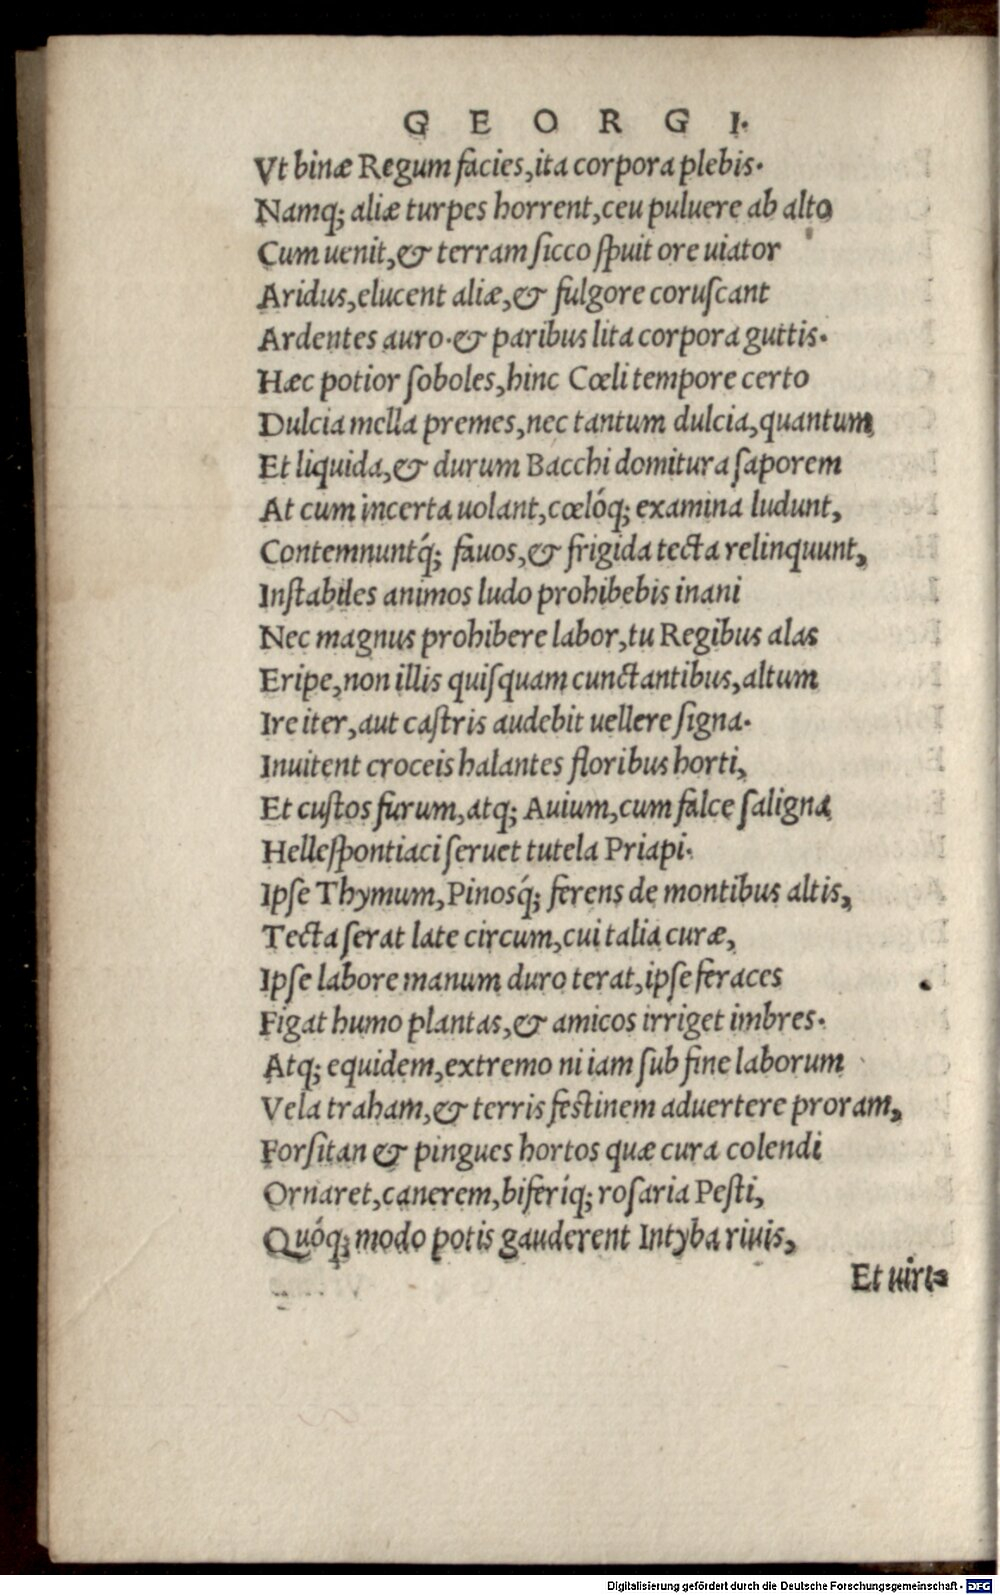 G E O R G I.
Vt binæ Regum facies,ita corpora plebis.
Namq; aliæ turpes horrent,ceu puluere ab alto
Cum uenit,& terram sicco spuit ore uiator
Aridus,elucent aliæ,& fulgore coruscant
Ardentes auro.& paribus lita corpora guttis.
Hæc potior soboles,hinc Cœli tempore certo
Dulcia mella premes,nec tantum dulcia,quantum
Et liquida,& durum Bacchi domitura saporem
At cum incerta uolant,cœlóq; examina ludunt,
Contemnuntq́; fauos,& frigida tecta relinquunt,
Instabiles animos ludo prohibebis inani
Nec magnus prohibere labor,tu Regibus alas
Eripe,non illis quisquam cunctantibus,altum
Ire iter,aut castris audebit uellere signa.
Inuitent croceis halantes floribus horti,
Et custos furum,atq; Auium,cum falce saligna
Hellespontiaci seruet tutela Priapi.
Ipse Thymum,Pinosq́; ferens de montibus altis,
Tecta serat late circum,cui talia curæ,
Ipse labore manum duro terat,ipse feraces
Figat humo plantas,& amicos irriget imbres.
Atq; equidem,extremo ni iam sub fine laborum
Vela traham,& terris festinem aduertere proram,
Forsitan & pingues hortos quæ cura colendi
Ornaret,canerem,biferíq; rosaria Pesti,
Quóq; modo potis gauderent Intyba riuis,
Et uiri-
Digitalisierung gefördert durch die Deutsche Forschungsgemeinschaft - DFG